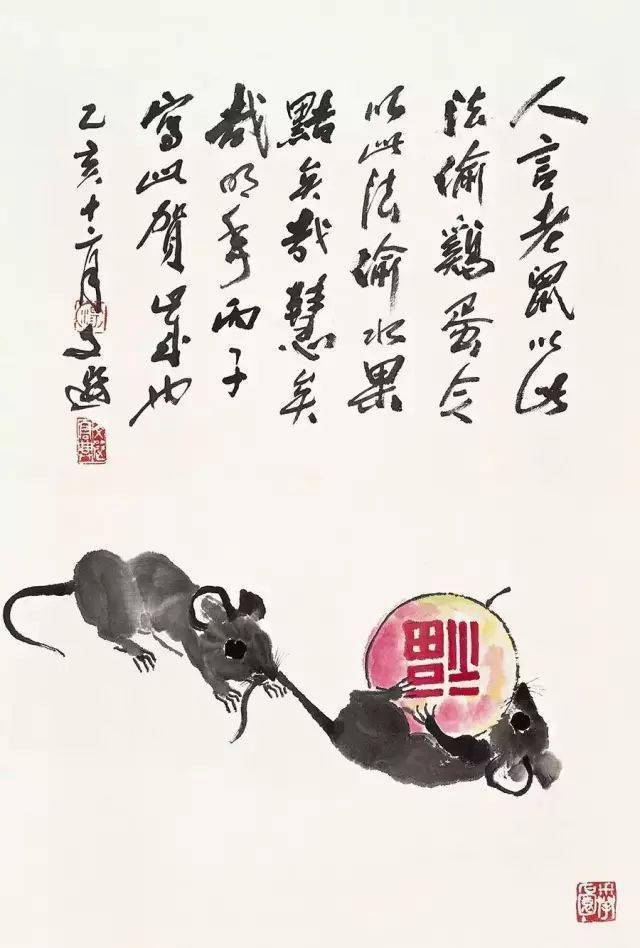 人言老鼠以此
法偷鷄蛋今
以此法偷水果
黠矣哉慧矣
哉明年丙子
寫此賀歲也
乙亥十二月
福